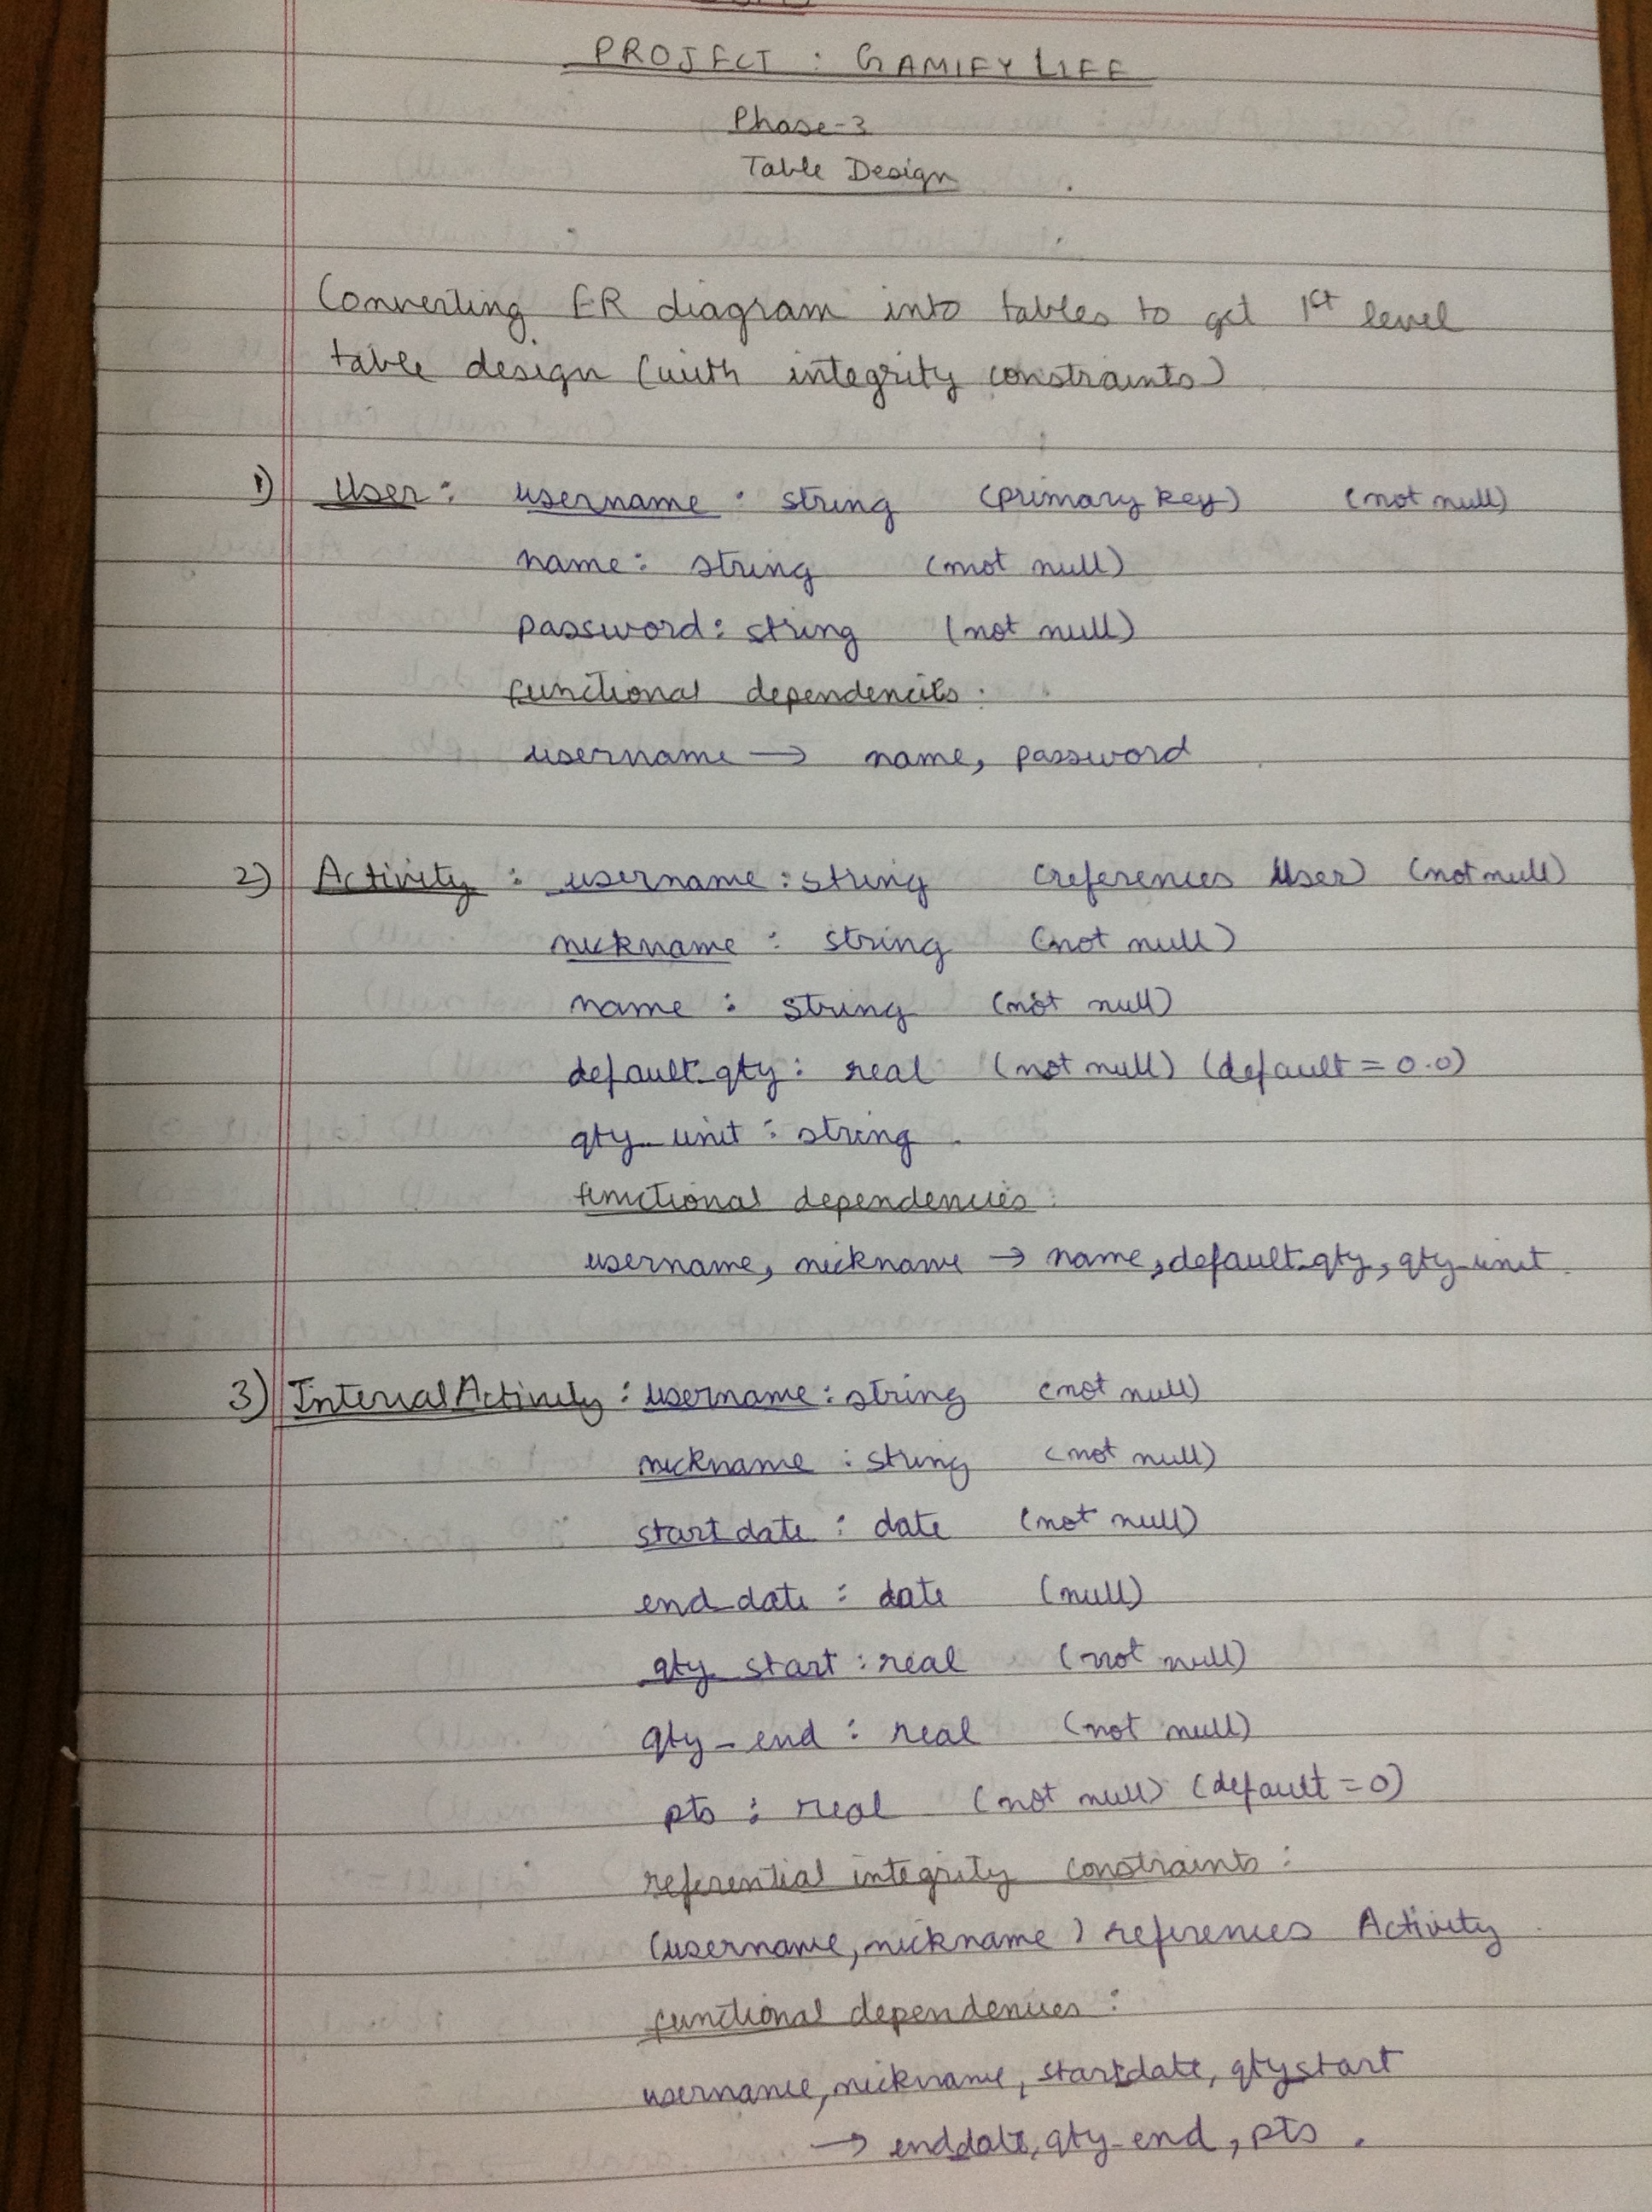 PROJECT : GAMIFY LIFE
Phase-3
Table Design
Converting ER diagram into tables to get 1st level
table design (with integrity constraints)
1) User : username : string (primary key) (not null)
name : string (not null)
password : string (not null)
functional dependencies :
username → name, password
2) Activity : username : string (references User) (not null)
nickname : string (not null)
name : string (not null)
default_qty : real (not null) (default = 0.0)
qty_unit : string
functional dependencies :
username, nickname → name, default_qty, qty_unit
3) IntervalActivity : username : string (not null)
nickname : string (not null)
start_date : date (not null)
end_date : date (null)
qty_start : real (not null)
qty_end : real (not null)
pts : real (not null) (default = 0)
referential integrity constraints :
(username, nickname) references Activity
functional dependencies :
username, nickname, start_date, qty_start
→ end_date, qty_end, pts.